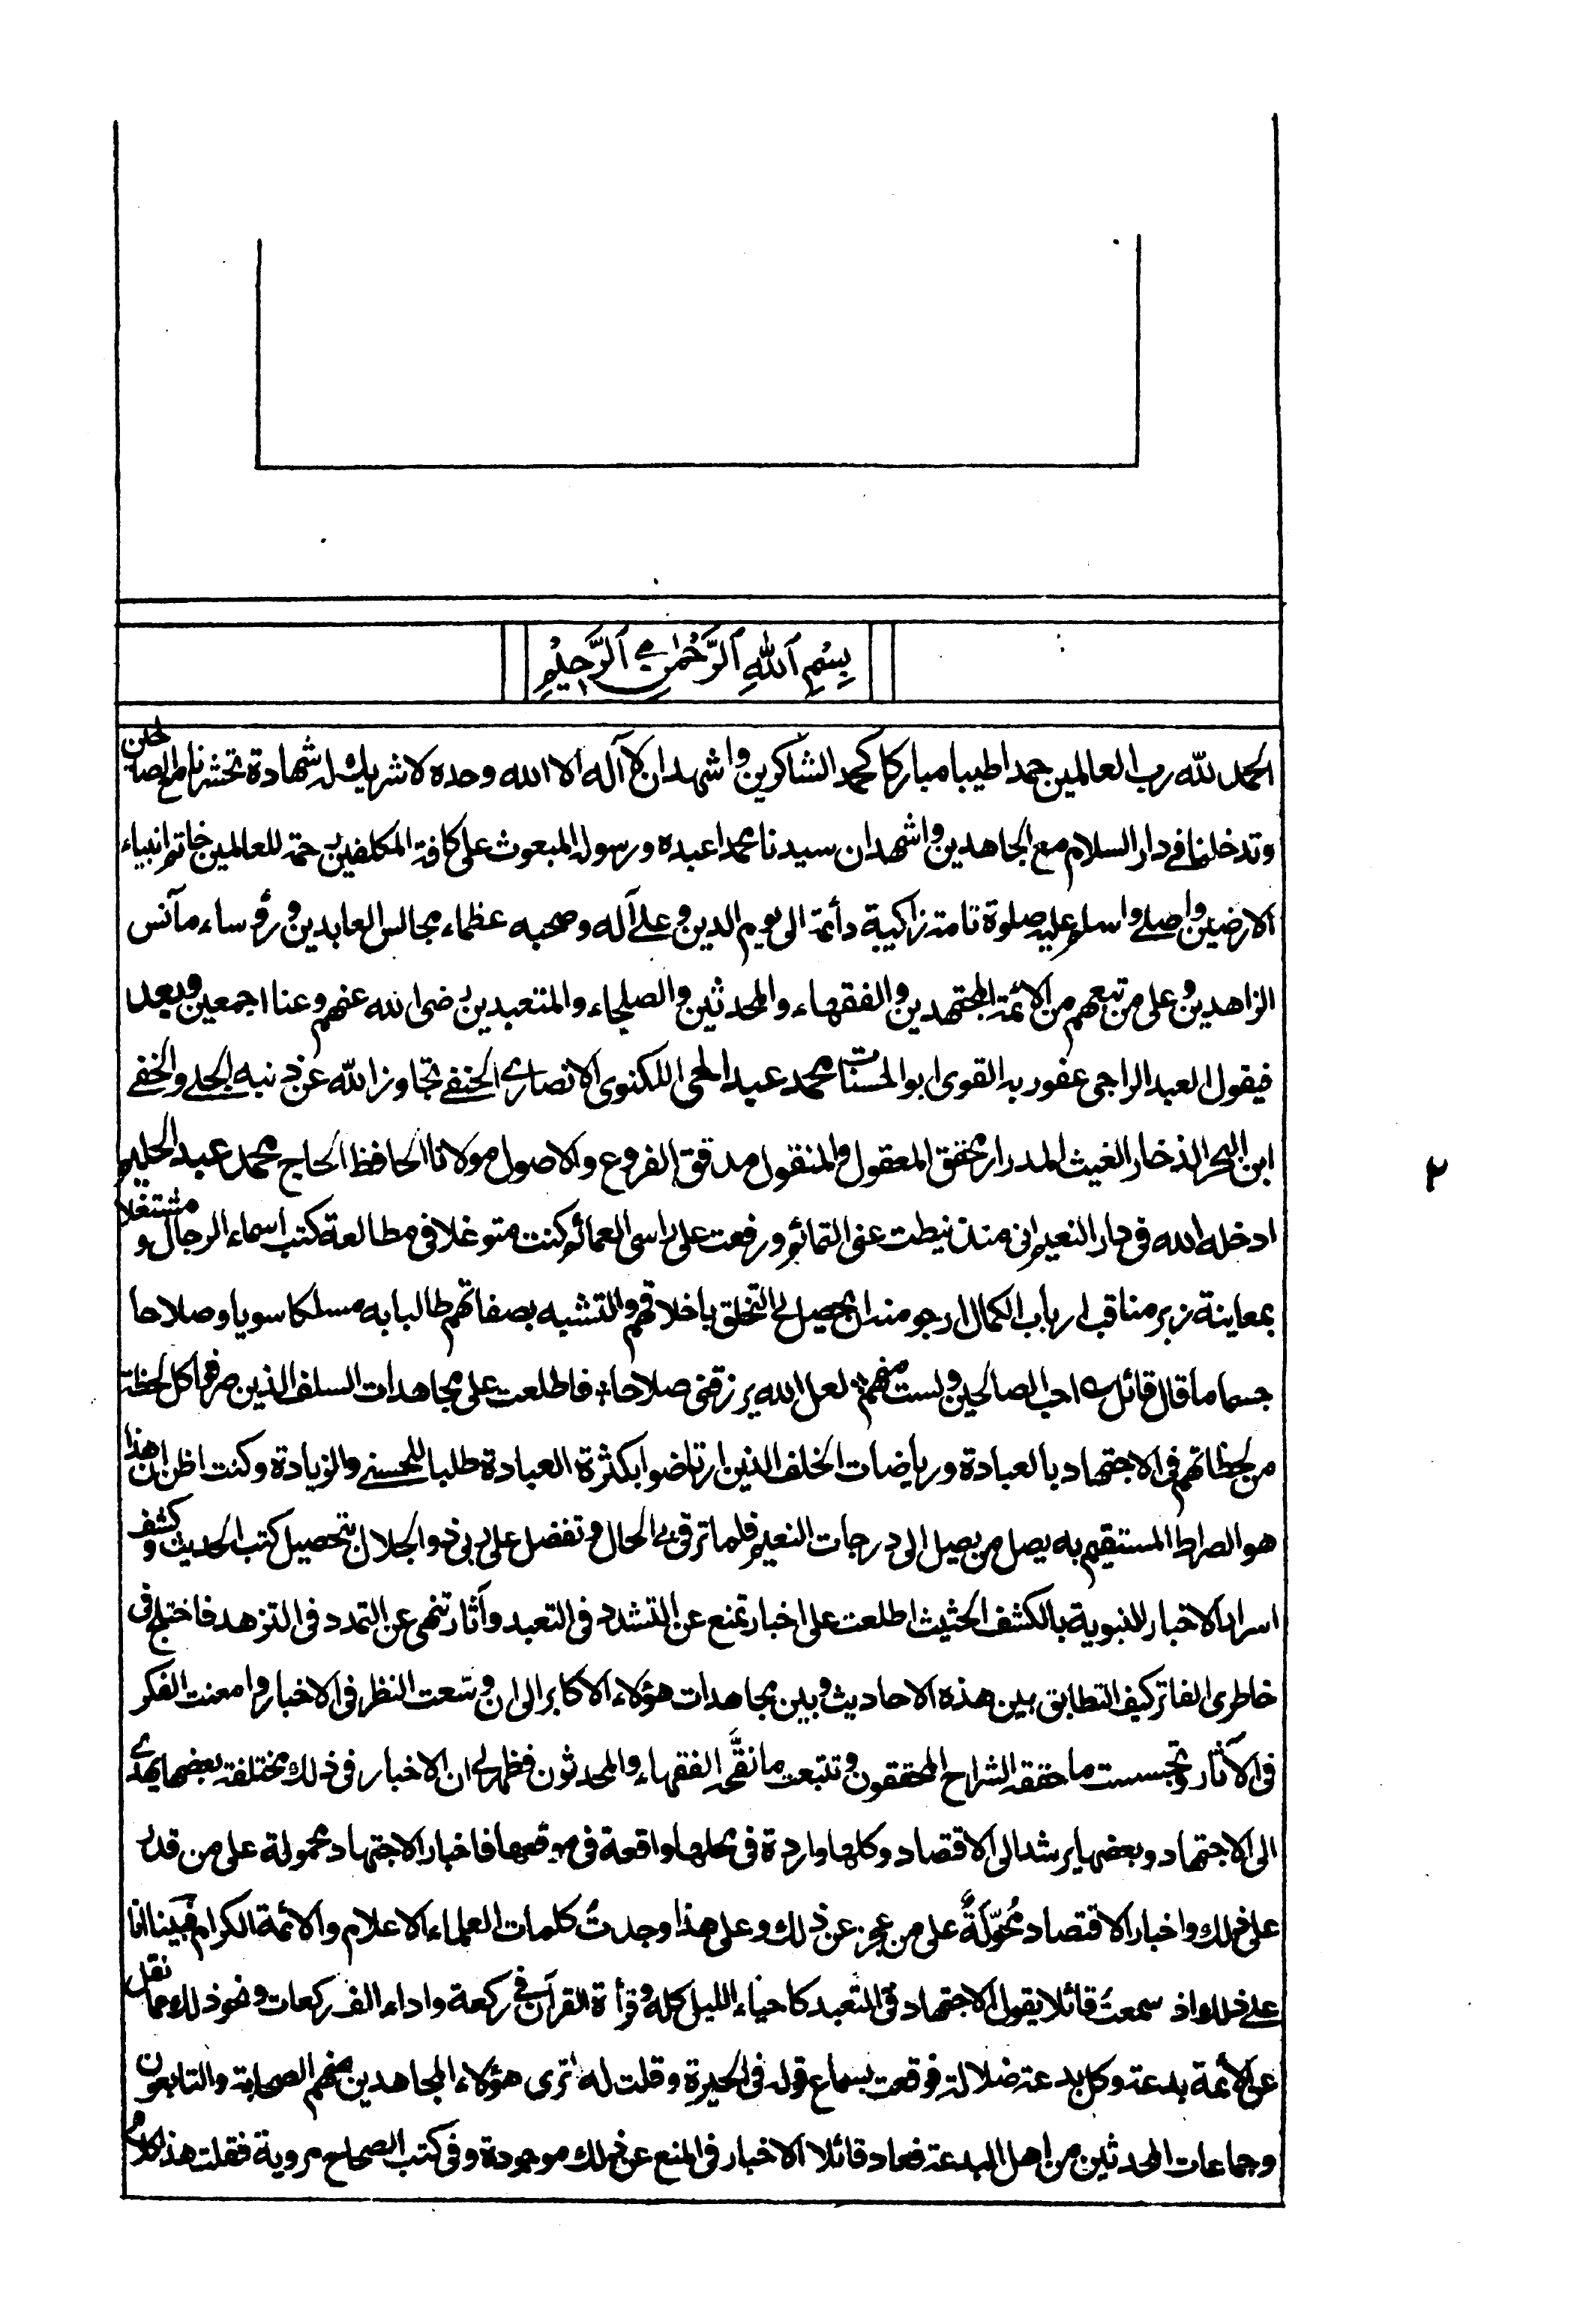 بِسْمِ ٱللّٰهِ ٱلرَّحْمٰنِ ٱلرَّحِيْمِ
الحمد للّٰه رب العالمين حمدا طيبا مباركا كحمد الشاكرين واشهد ان لا آله الا الله وحده لا شريك له شهادة تحشرنا مع الصالحين
وتدخلنا في دار السلام مع المجاهدين واشهد ان سيدنا محمدا عبده ورسوله المبعوث على كافة المكلفين رحمة للعالمين خاتم انبياء
الارضين واصلے واسلم عليه صلوة تامة زاكيبة دأئمة الى يوم الدين وعلےٰ آله وصحبه عظماء مجالس العابدين ورؤساء مآنس
الزاهدين وعلى من تبعهم من الائمة المجتهدين والفقهاء والمحدثين والصلحاء والمتعبدين رضى الله عنهم وعنا اجمعين وبعد
فيقول العبد الراجى عفو ربه القوى ابو الحسنات محمد عبد الحى اللكنوى الانصارے الحنفے تجاوز اللّٰه عن ذنبه الجلے والخفے
ابن البحر الذخار الغيث المدرار محقق المعقول والمنقول مدقق الفروع والاصول مولانا الحافظ الحاج محمد عبد الحليم
ادخله الله فى دار النعيم انى منذ نيطت عنى التمائم ورفعت على راسى العمائم كنت متوغلا فى مطالعة كتب اسماء الرجال ومشتغلا
بمعاينة زبر مناقب ارباب الكمال ارجو منه ان يحصل لے التخلق باخلاقهم والتشبه بصفاتهم طالبا به مسلكا سويا وصلاحا
جسما ما قال قائل ے احب الصالحين ولست منهم ؞ لعل الله يرزقنى صلاحا ؞ فاطلعت على مجاهدات السلف الذين صرفوا كل لحظة
من لحظاتهم فى الاجتهاد بالعبادة ورياضات الخلف الذين ارتاضوا بكثرة العبادة طلبا للحسنے والزيادة وكنت اظن ان هذا
هو الصراط المستقيم به يصل من يصل الى درجات النعيم فلما ترقى بے الحال وتفضل على ربى ذو الجلال بتحصيل كتب الحديث وكشف
اسرار الاخبار النبوية بالكشف الحثيث اطلعت على اخبار تمنع عن التشدد فى التعبد وآثار تنهى عن التمدد فى التزهد فاختلج فى
خاطرى الفاتر كيف التطابق بين هذه الاحاديث وبين مجاهدات هؤلاء الاكابر الى ان وسّعت النظر فى الاخبار وامعنت الفكر
فى الآثار وتجسست ما حققه الشراح المحققون وتتبعت ما نقَّحه الفقهاء والمحدثون فظهر لے ان الاخبار فى ذلك مختلفة بعضها يهدے
الى الاجتهاد وبعضها يرشد الى الاقتصاد وكلها واردة فى محلها واقعة فى موقعها فاخبار الاجتهاد محمولة على من قدر
على ذلك واخبار الاقتصاد مُحوّلَةٌ على من عجز عن ذلك وعلى هذا وجدتُ كلمات العلماء الاعلام والائمة الكرام فبينا انا
علے ذلك اذ سمعتُ قائلا يقول الاجتهاد فى التعبد كاحياء الليل كله وقرأة القرآن فے ركعة واداء الف ركعات ونحو ذلك مما نقل
عن الأئمة بدعة وكل بدعة ضلالة فوقعت بسماع قوله فى الحيرة وقلت له اترى هؤلاء المجاهدين منهم الصحابة والتابعون
وجماعات المحدثين من اهل البدعة فعاد قائلا الاخبار فى المنع عن ذلك موجودة وفى كتب الصحاح مروية فقلت هذا كلامُ
٢